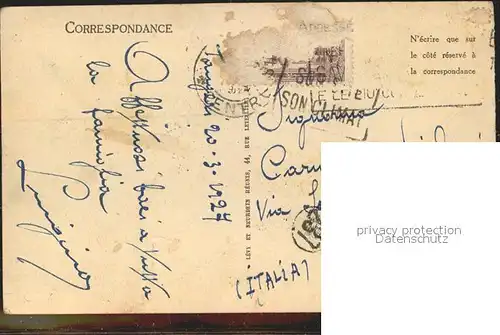 CORRESPONDANCE
ADRESSE
N'écrire que sur
le côté réservé à
la correspondance
SON
CLIMAT
20-3-1927
Affettuosi baci a tutta
la famiglia
Luigino
LÉVY ET NEURDEIN RÉUNIS, 44, RUE LETELLIER
Signorina
Via
(ITALIA)
privacy protection
Datenschutz